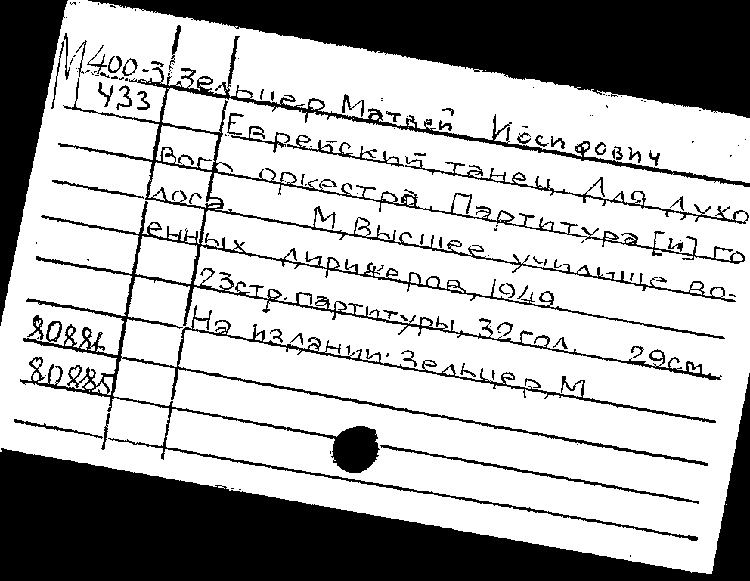 М 400-3 Зельцер, Матвей Иосифович
433
Еврейский танец. Для духо
вого оркестра. Партитура [и] го
лоса. М, Высшее училище во-
енных дирижеров, 1949.
23стр. партитуры, 32гол. 29см.
На издании: Зельцер, М
80886
80885